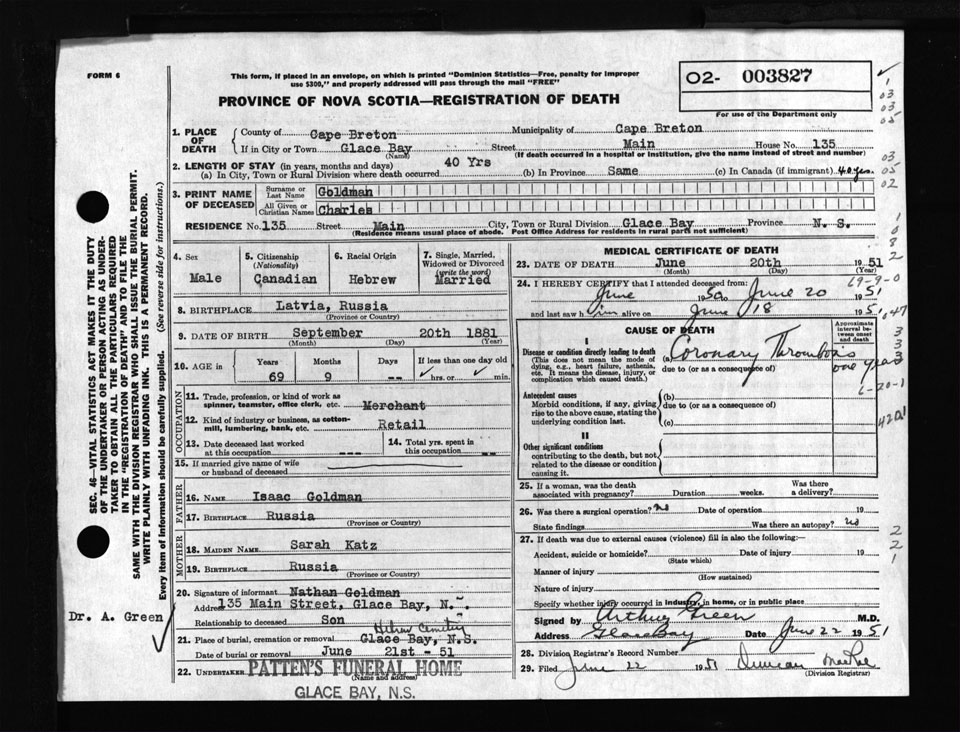 FORM 6
This form, if placed in an envelope, on which is printed "Dominion Statistics—Free, penalty for improper
use $300," and properly addressed will pass through the mail "FREE"
PROVINCE OF NOVA SCOTIA—REGISTRATION OF DEATH
02- 003827
For use of the Department only
1. PLACE OF DEATH
County of Cape Breton Municipality of Cape Breton
If in City or Town Glace Bay Street Main House No. 135
(Name) (If death occurred in a hospital or institution, give the name instead of street and number)
2. LENGTH OF STAY (in years, months and days)
(a) In City, Town or Rural Division where death occurred 40 Yrs (b) In Province Same (c) In Canada (if immigrant) 40 yrs.
3. PRINT NAME OF DECEASED
Surname or Last Name Goldman
All Given or Christian Names Charles
RESIDENCE No. 135 Street Main City, Town or Rural Division Glace Bay Province N. S.
(Residence means usual place of abode. Post Office Address for residents in rural is not sufficient)
4. Sex Male
5. Citizenship (Nationality) Canadian
6. Racial Origin Hebrew
7. Single, Married, Widowed or Divorced (write the word) Married
8. BIRTHPLACE Latvia, Russia
(Province or Country)
9. DATE OF BIRTH September 20th 1881
(Month) (Day) (Year)
10. AGE in Years Months Days If less than one day old
69 9 -- hrs. or min.
OCCUPATION
11. Trade, profession, or kind of work as
spinner, teamster, office clerk, etc. Merchant
12. Kind of industry or business, as cotton-
mill, lumbering, bank, etc. Retail
13. Date deceased last worked at this occupation --
14. Total yrs. spent in this occupation --
15. If married give name of wife
or husband of deceased
FATHER
16. NAME Isaac Goldman
17. BIRTHPLACE Russia
(Province or Country)
MOTHER
18. MAIDEN NAME Sarah Katz
19. BIRTHPLACE Russia
(Province or Country)
20. Signature of informant Nathan Goldman
Address 135 Main Street, Glace Bay, N.
Relationship to deceased Son
21. Place of burial, cremation or removal Glace Bay, N.S.
Date of burial or removal June 21st - 51
22. UNDERTAKER PATTEN'S FUNERAL HOME
(Name and address)
GLACE BAY, N.S.
MEDICAL CERTIFICATE OF DEATH
23. DATE OF DEATH June 20th 1951
(Month) (Day) (Year)
24. I HEREBY CERTIFY that I attended deceased from:
June 1950 to June 20 1951
and last saw him alive on June 18 1951
CAUSE OF DEATH
Approximate interval between onset and death
I
Disease or condition directly leading to death
(This does not mean the mode of
dying, e.g., heart failure, asthenia,
etc. It means the disease, injury, or
complication which caused death.)
(a) Coronary Thrombosis one year
due to (or as a consequence of)
Antecedent causes
Morbid conditions, if any, giving
rise to the above cause, stating the
underlying condition last.
(b)
due to (or as a consequence of)
(c)
II
Other significant conditions
contributing to the death, but not
related to the disease or condition
causing it.
25. If a woman, was the death
associated with pregnancy? Duration weeks. Was there a delivery?
26. Was there a surgical operation? No Date of operation 19
State findings Was there an autopsy? No
27. If death was due to external causes (violence) fill in also the following:—
Accident, suicide or homicide? Date of injury 19
(State which)
Manner of injury
(How sustained)
Nature of injury
Specify whether injury occurred in industry, in home, or in public place
Signed by Arthur Green M.D.
Address Glace Bay Date June 22 1951
28. Division Registrar's Record Number
29. Filed June 22 1951 Duncan MacRae
(Division Registrar)
SEC. 46—VITAL STATISTICS ACT MAKES IT THE DUTY
OF THE UNDERTAKER OR PERSON ACTING AS UNDER-
TAKER TO OBTAIN ALL THE PARTICULARS REQUIRED
IN THE "REGISTRATION OF DEATH" AND TO FILE THE
SAME WITH THE DIVISION REGISTRAR WHO SHALL ISSUE THE BURIAL PERMIT.
WRITE PLAINLY WITH UNFADING INK. THIS IS A PERMANENT RECORD.
Every item of information should be carefully supplied. (See reverse side for instructions.)
Dr. A. Green
69-9-0